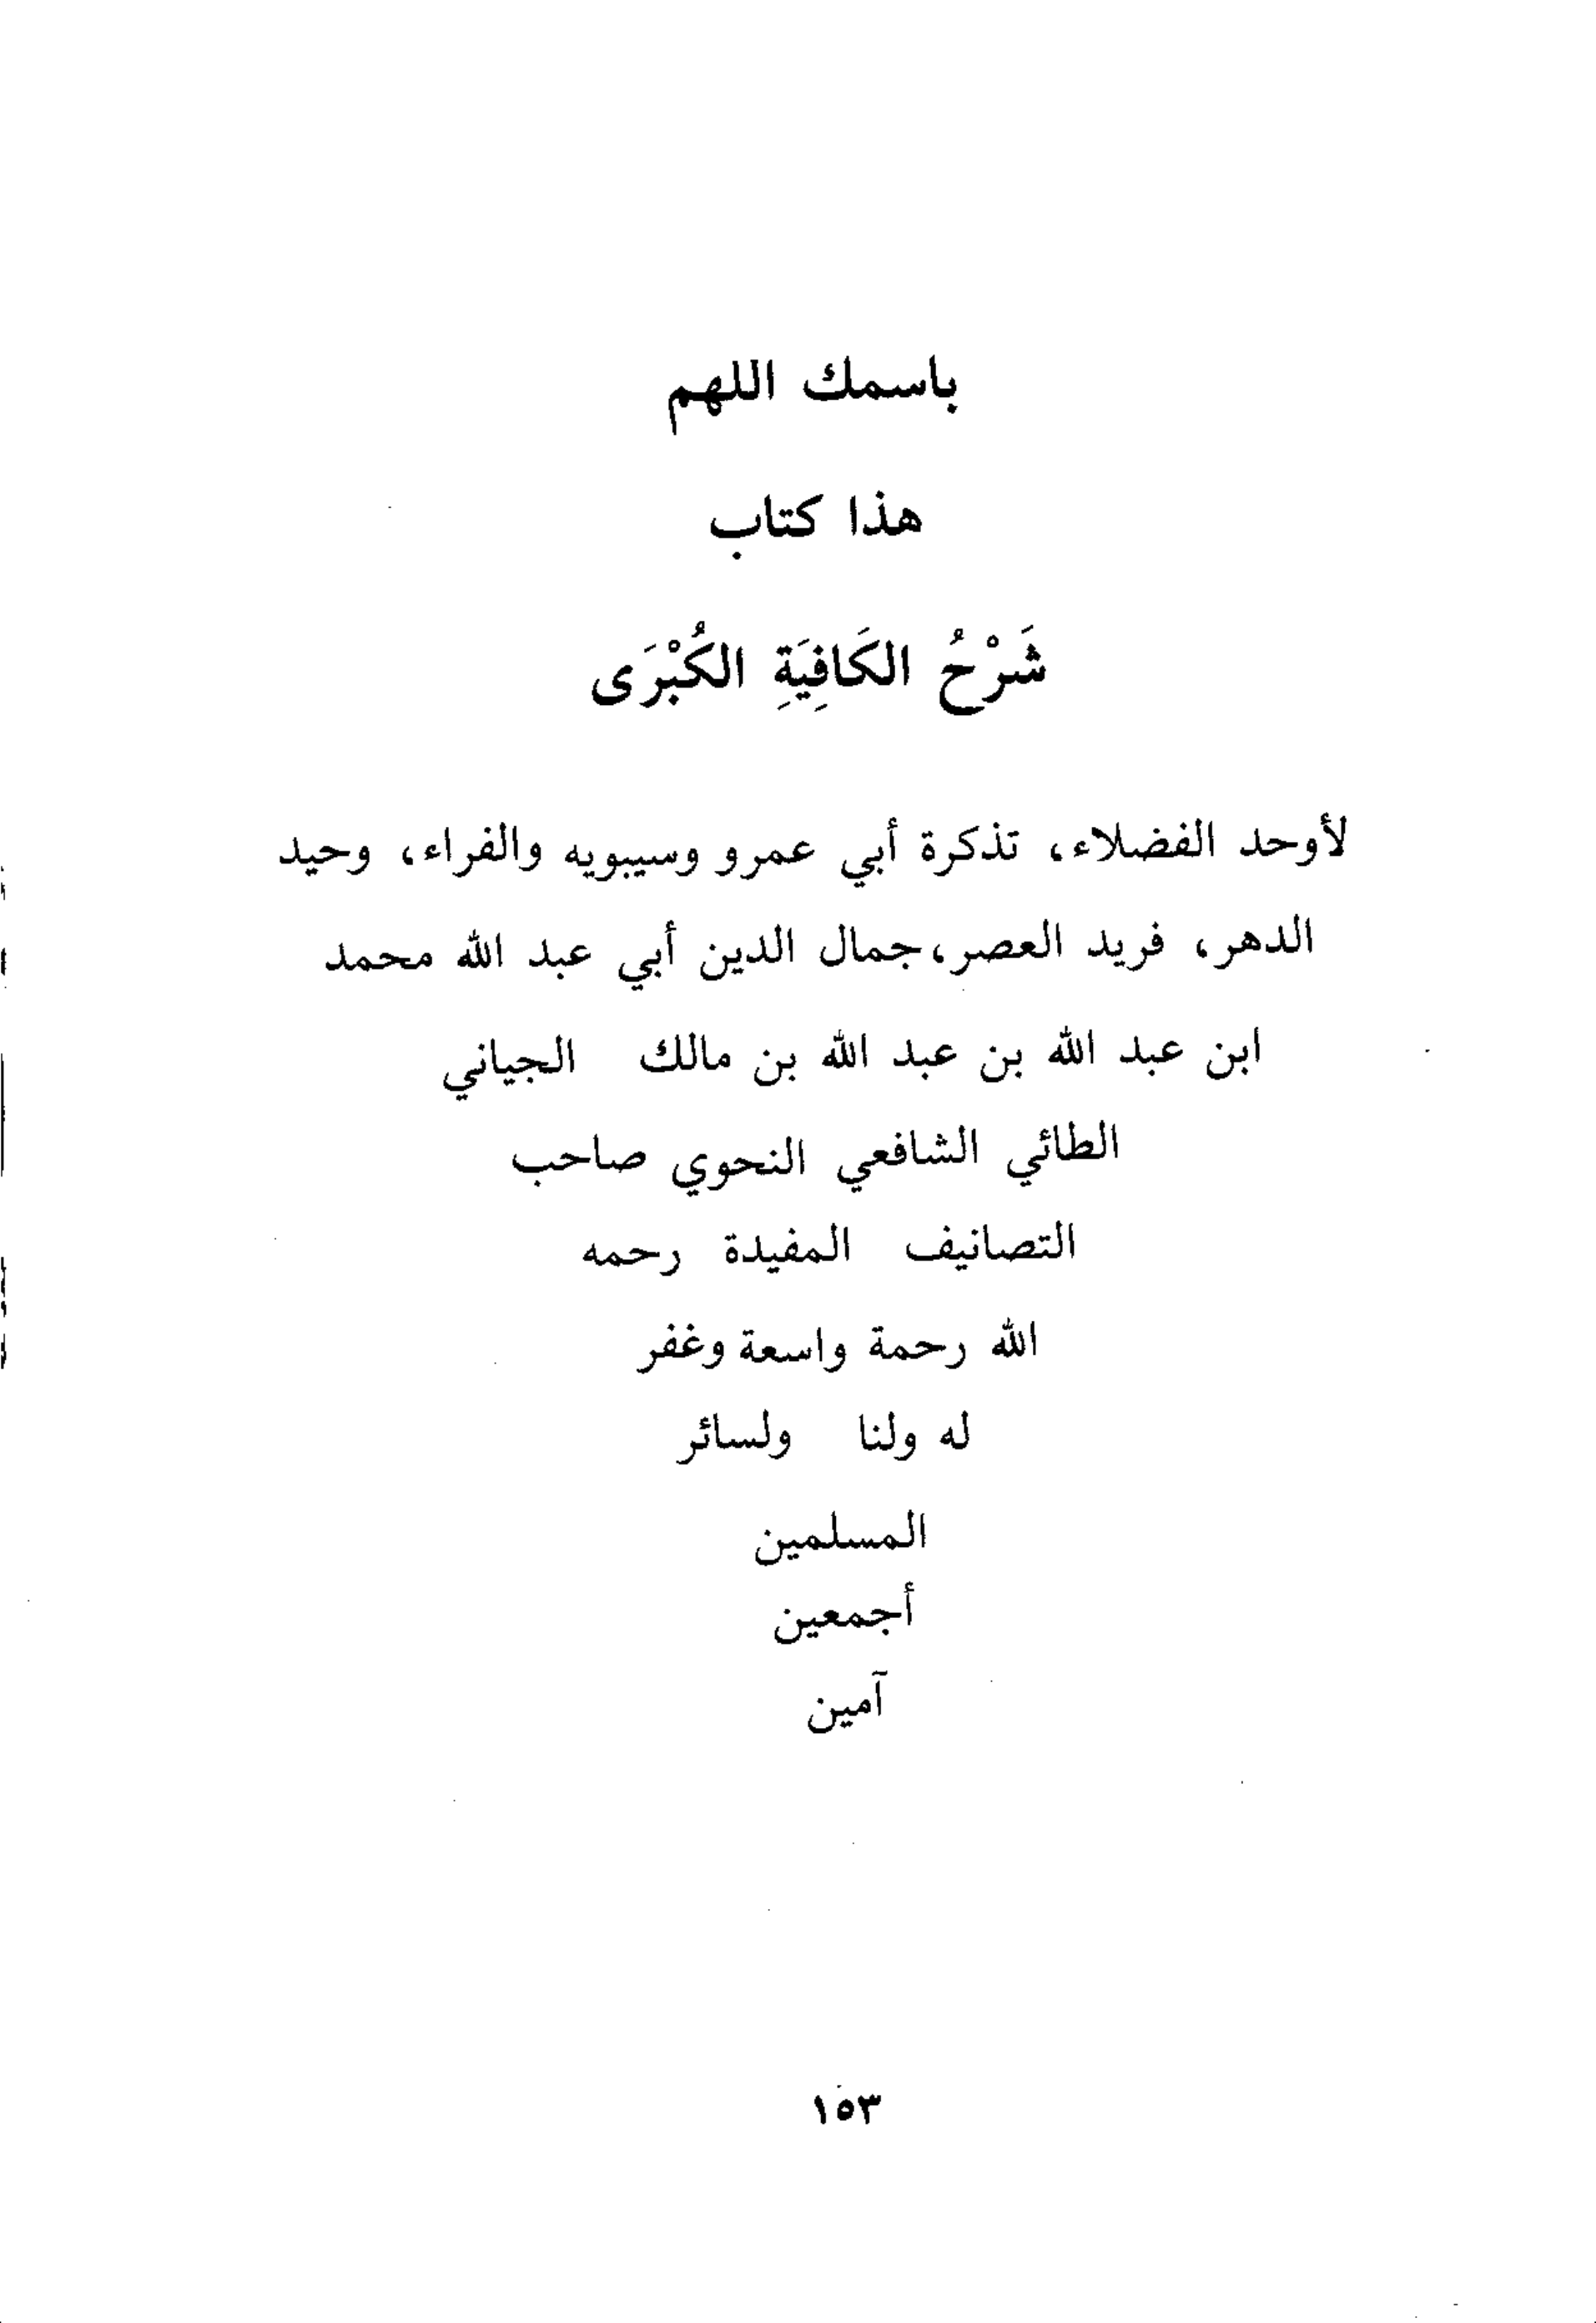 باسمك اللهم
هذا كتاب
شَرْحُ الكَافِيَةِ الكُبْرَى
لأوحد الفضلاء، تذكرة أبي عمرو وسيبويه والفراء، وحيد
الدهر، فريد العصر، جمال الدين أبي عبد الله محمد
ابن عبد الله بن عبد الله بن مالك الجياني
الطائي الشافعي النحوي صاحب
التصانيف المفيدة رحمه
الله رحمة واسعة وغفر
له ولنا ولسائر
المسلمين
أجمعين
آمين
١٥٣